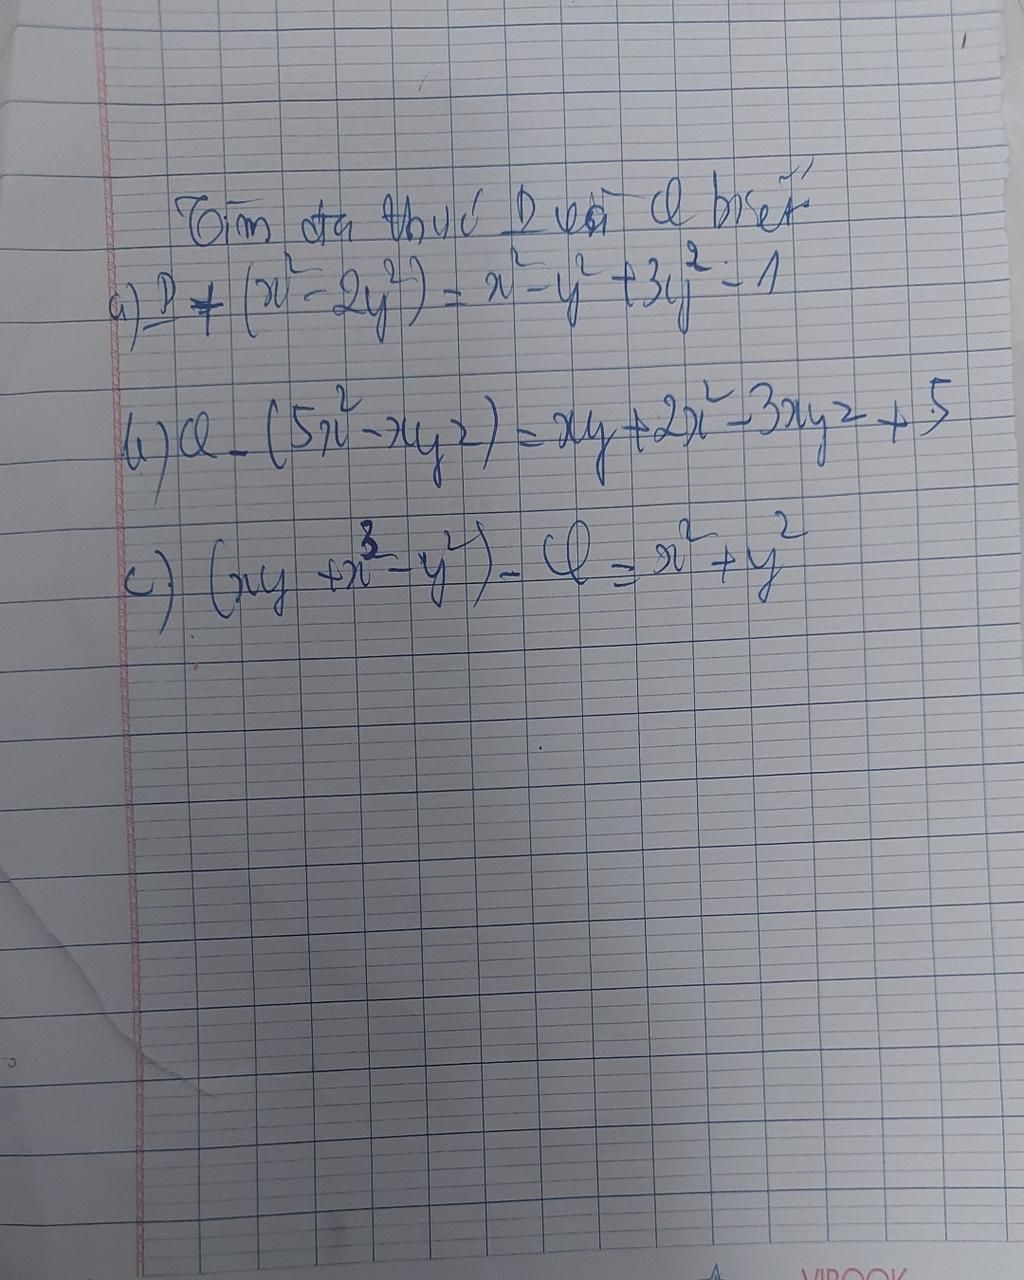 Tìm đa thức P và Q biết
a) P + (x² - 2y²) = x² - y² + 3y² - 1
b) Q - (5x² - xyz) = xy + 2x² - 3xyz + 5
c) (xy + x³ - y²) - Q = x² + y²
VIBOOK